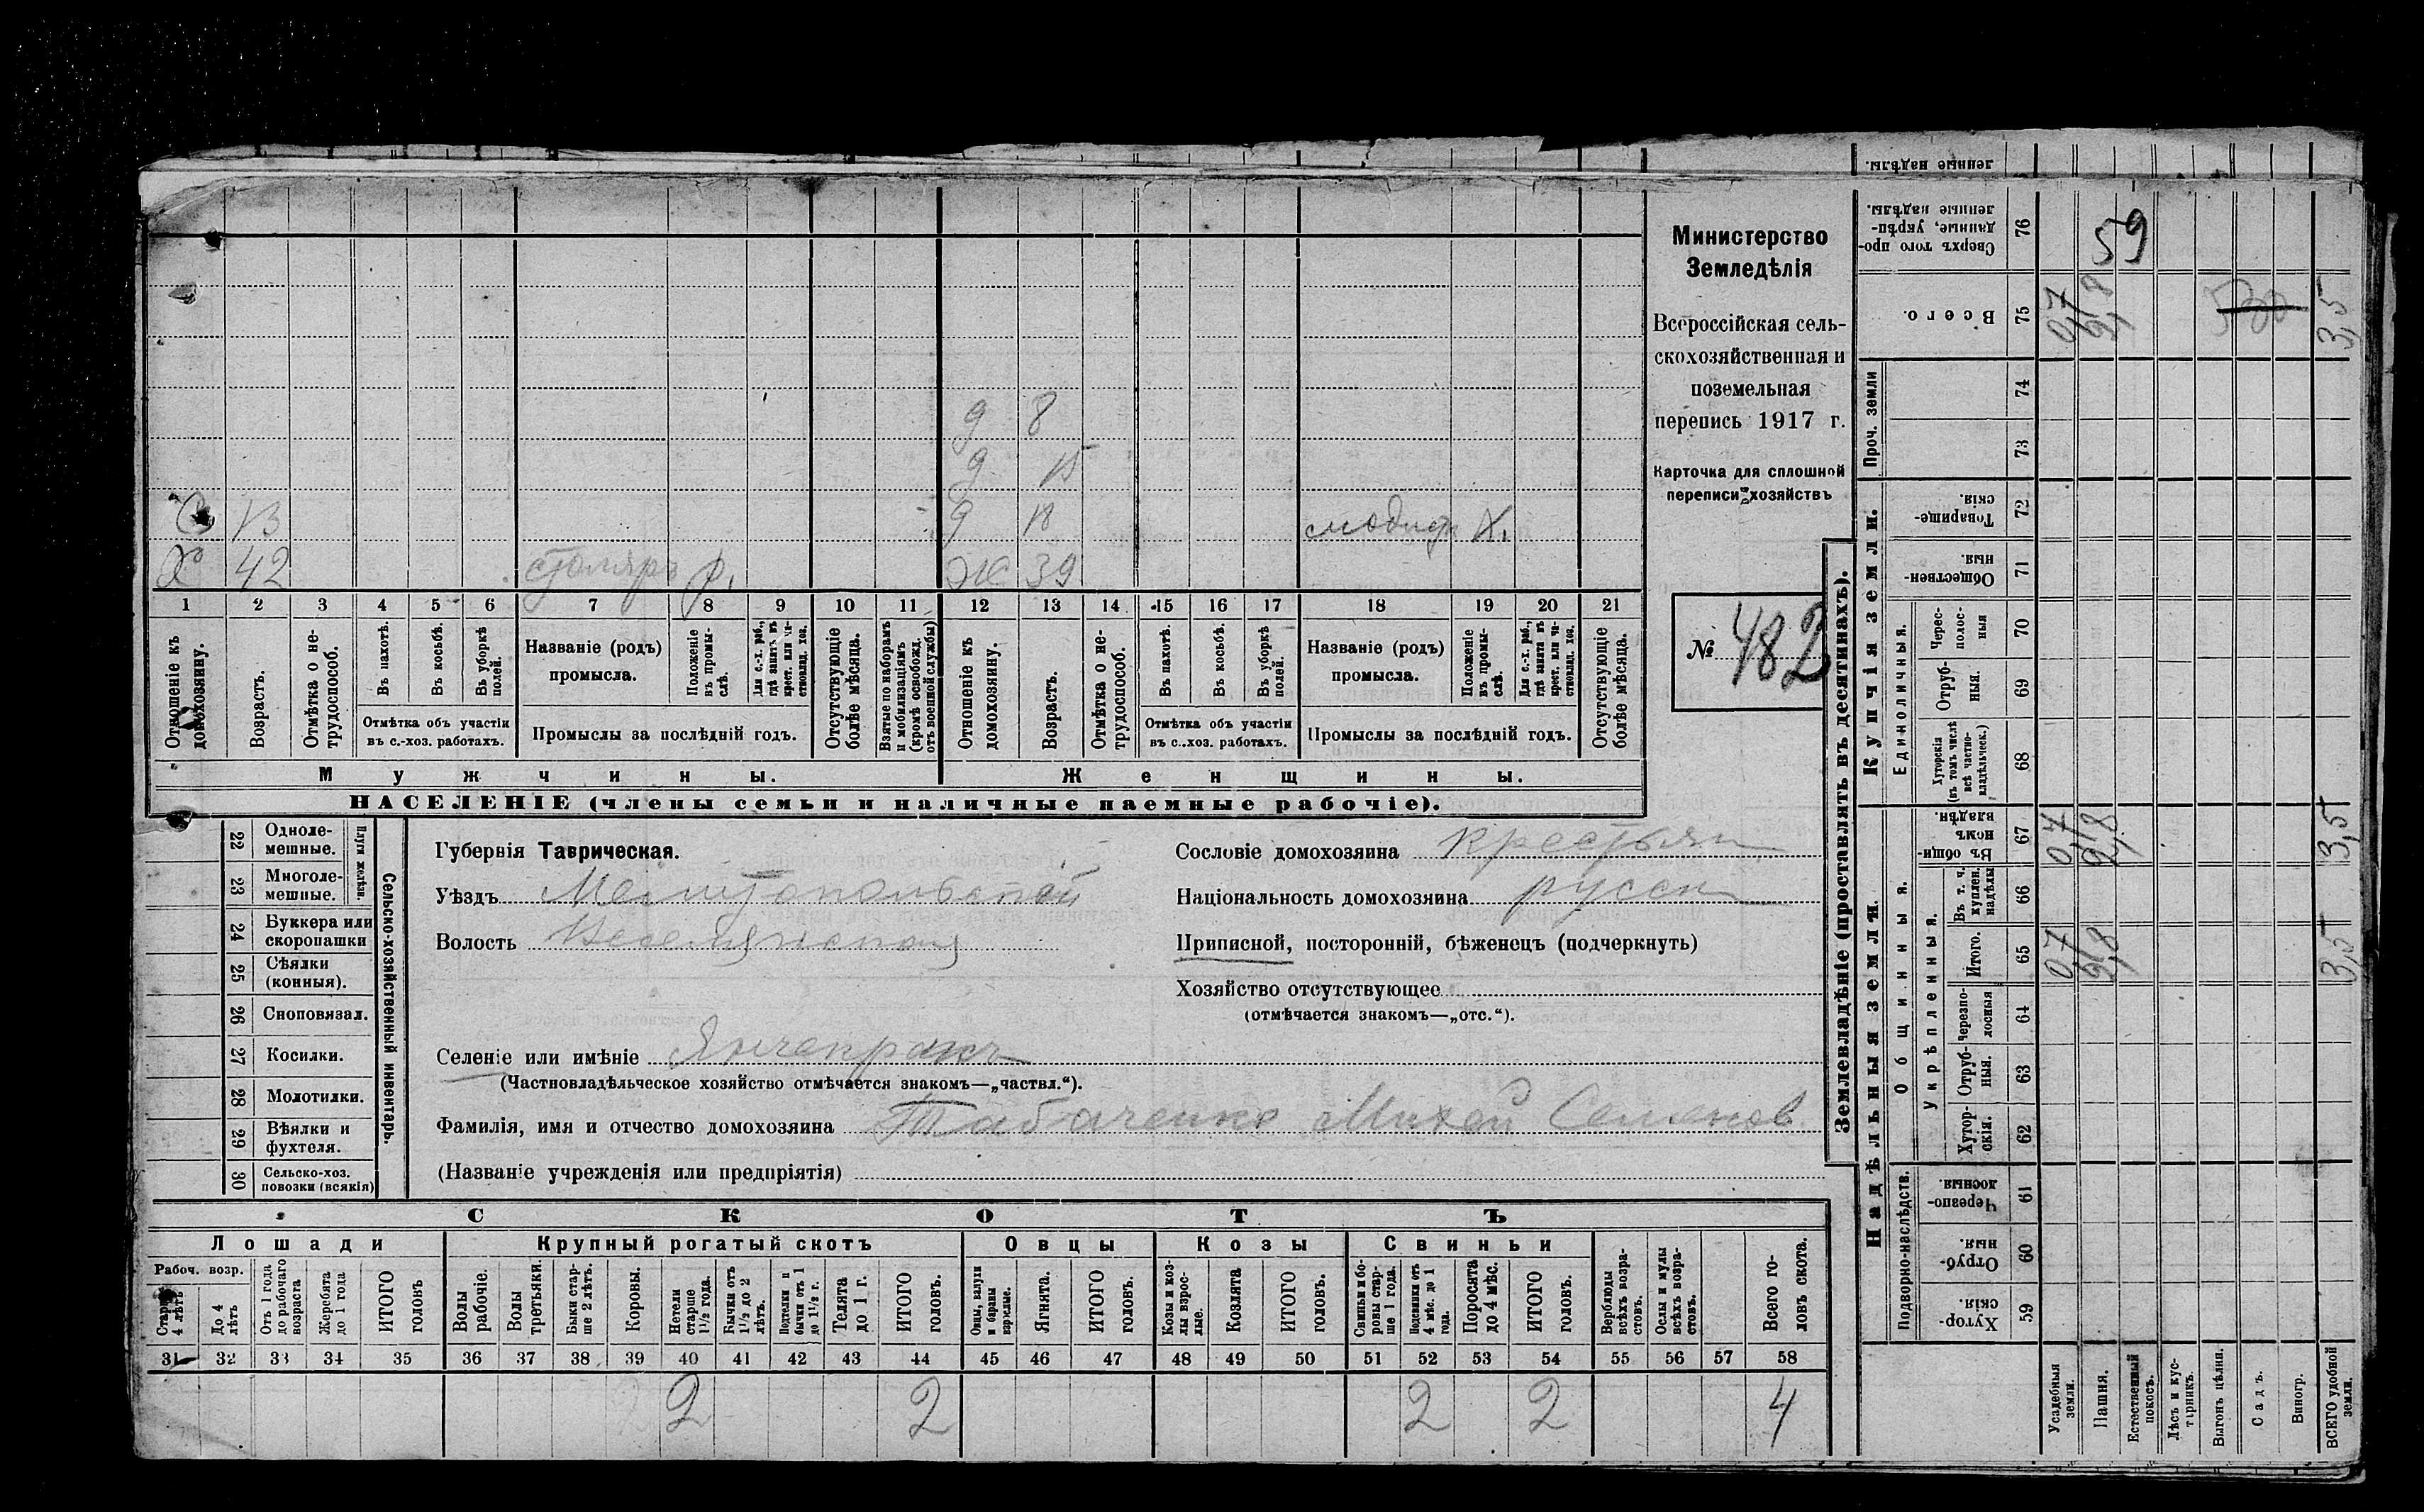 ленные надѣлы.
Министерство
Земледѣлія
Всероссійская сель-
скохозяйственная и
поземельная
перепись 1917 г.
Карточка для сплошной
переписи хозяйствъ
№ 482
д 8
д 15
С 13 д 18
Х 42 столяръ Ж 39
1 2 3 4 5 6 7 8 9 10 11 12 13 14 15 16 17 18 19 20 21
Отношеніе къ домохозяину.
Возрастъ.
Отмѣтка о не-трудоспособ.
Въ пахотѣ.
Въ косьбѣ.
Въ уборкѣ полей.
Отмѣтка объ участіи
въ с.-хоз. работахъ.
Названіе (родъ)
промысла.
Положеніе въ промы-слѣ.
Для с.-х. раб., гдѣ занятъ въ крест. или ча-стновлад. хоз.
Промыслы за послѣдній годъ.
Отсутствующіе болѣе мѣсяца.
Взятые по наборамъ и мобилизаціямъ (кромѣ освобожд. отъ военной службы)
Отношеніе къ домохозяину.
Возрастъ.
Отмѣтка о не-трудоспособ.
Въ пахотѣ.
Въ косьбѣ.
Въ уборкѣ полей.
Отмѣтка объ участіи
въ с.-хоз. работахъ.
Названіе (родъ)
промысла.
Положеніе въ промы-слѣ.
Для с.-х. раб., гдѣ занята въ крест. или ча-стновлад. хоз.
Промыслы за послѣдній годъ.
Отсутствующіе болѣе мѣсяца.
Мужчины. Женщины.
НАСЕЛЕНІЕ (члены семьи и наличные наемные рабочіе).
22 Одноле-мешные.
23 Многоле-мешные.
Плуги желѣзн.
24 Буккера или скоропашки
25 Сѣялки (конныя).
26 Сноповязал.
27 Косилки.
28 Молотилки.
29 Вѣялки и фухтеля.
30 Сельско-хоз. повозки (всякія)
Сельско-хозяйственный инвентарь.
Губернія Таврическая.
Уѣздъ Мелитопольской
Волость
Селеніе или имѣніе Янчекракъ
(Частновладѣльческое хозяйство отмѣчается знакомъ—„частвл.“).
Фамилія, имя и отчество домохозяина Табаченко Михей Семенов
(Названіе учрежденія или предпріятія)
Сословіе домохозяина крестьян
Національность домохозяина русск
Приписной, посторонній, бѣженецъ (подчеркнуть)
Хозяйство отсутствующее
(отмѣчается знакомъ—„отс.“).
СКОТЪ
Лошади Крупный рогатый скотъ Овцы Козы Свиньи
Рабоч. возр.
Старше 4 лѣтъ
До 4 лѣтъ
Отъ 1 года до рабочаго возраста
Жеребята до 1 года
ИТОГО головъ
Волы рабочіе.
Волы третьяки.
Быки стар-ше 2 лѣтъ.
Коровы.
Нетели старше 1½ года.
Бычки отъ 1½ до 2 лѣтъ.
Подтелки и бычки отъ 1 до 1½ г.
Телята до 1 г.
ИТОГО головъ.
Овцы, валухи и бараны взрослые.
Ягнята.
ИТОГО головъ.
Козы и коз-лы взрос-лые.
Козлята
ИТОГО головъ.
Свиньи и бо-ровы стар-ше 1 года.
Подсвинки отъ 4 мѣс. до 1 года.
Поросята до 4 мѣс.
ИТОГО головъ.
Верблюды всѣхъ возра-стовъ.
Ослы и мулы всѣхъ возра-стовъ.
Всего го-ловъ скота.
31 32 33 34 35 36 37 38 39 40 41 42 43 44 45 46 47 48 49 50 51 52 53 54 55 56 57 58
2 2 2 2 4
Землевладѣніе (проставлять въ десятинахъ).
Сверхъ того про-данные, укрѣп-ленные надѣлы. 76 59
Всего. 75 0,7 2,8 3,5
Купчія земли.
Проч. земли 74
73
Товарище-скія. 72
Обществен-ныя. 71
Единоличныя.
Черес-полос-ныя 70
Отруб-ныя. 69
Хуторскія (въ томъ числѣ всѣ частно-владѣльческ.) 68
Надѣльныя земли.
Общинныя.
Въ общин-номъ владѣн. 67 0,7 2,8 3,5
Укрѣпленныя.
Въ т. ч. куплен. надѣлы 66
Итого. 65 0,7 2,8 3,5
Черезпо-лосныя 64
Отруб-ныя. 63
Хутор-скія. 62
Подворно-наслѣдств.
Черезпо-лосныя. 61
Отруб-ныя. 60
Хутор-скія 59
Усадебныя земли.
Пашня.
Естественный покосъ.
Лѣсъ и кус-тарникъ.
Выгонъ цѣлин.
Садъ.
Виногр.
ВСЕГО удобной земли.